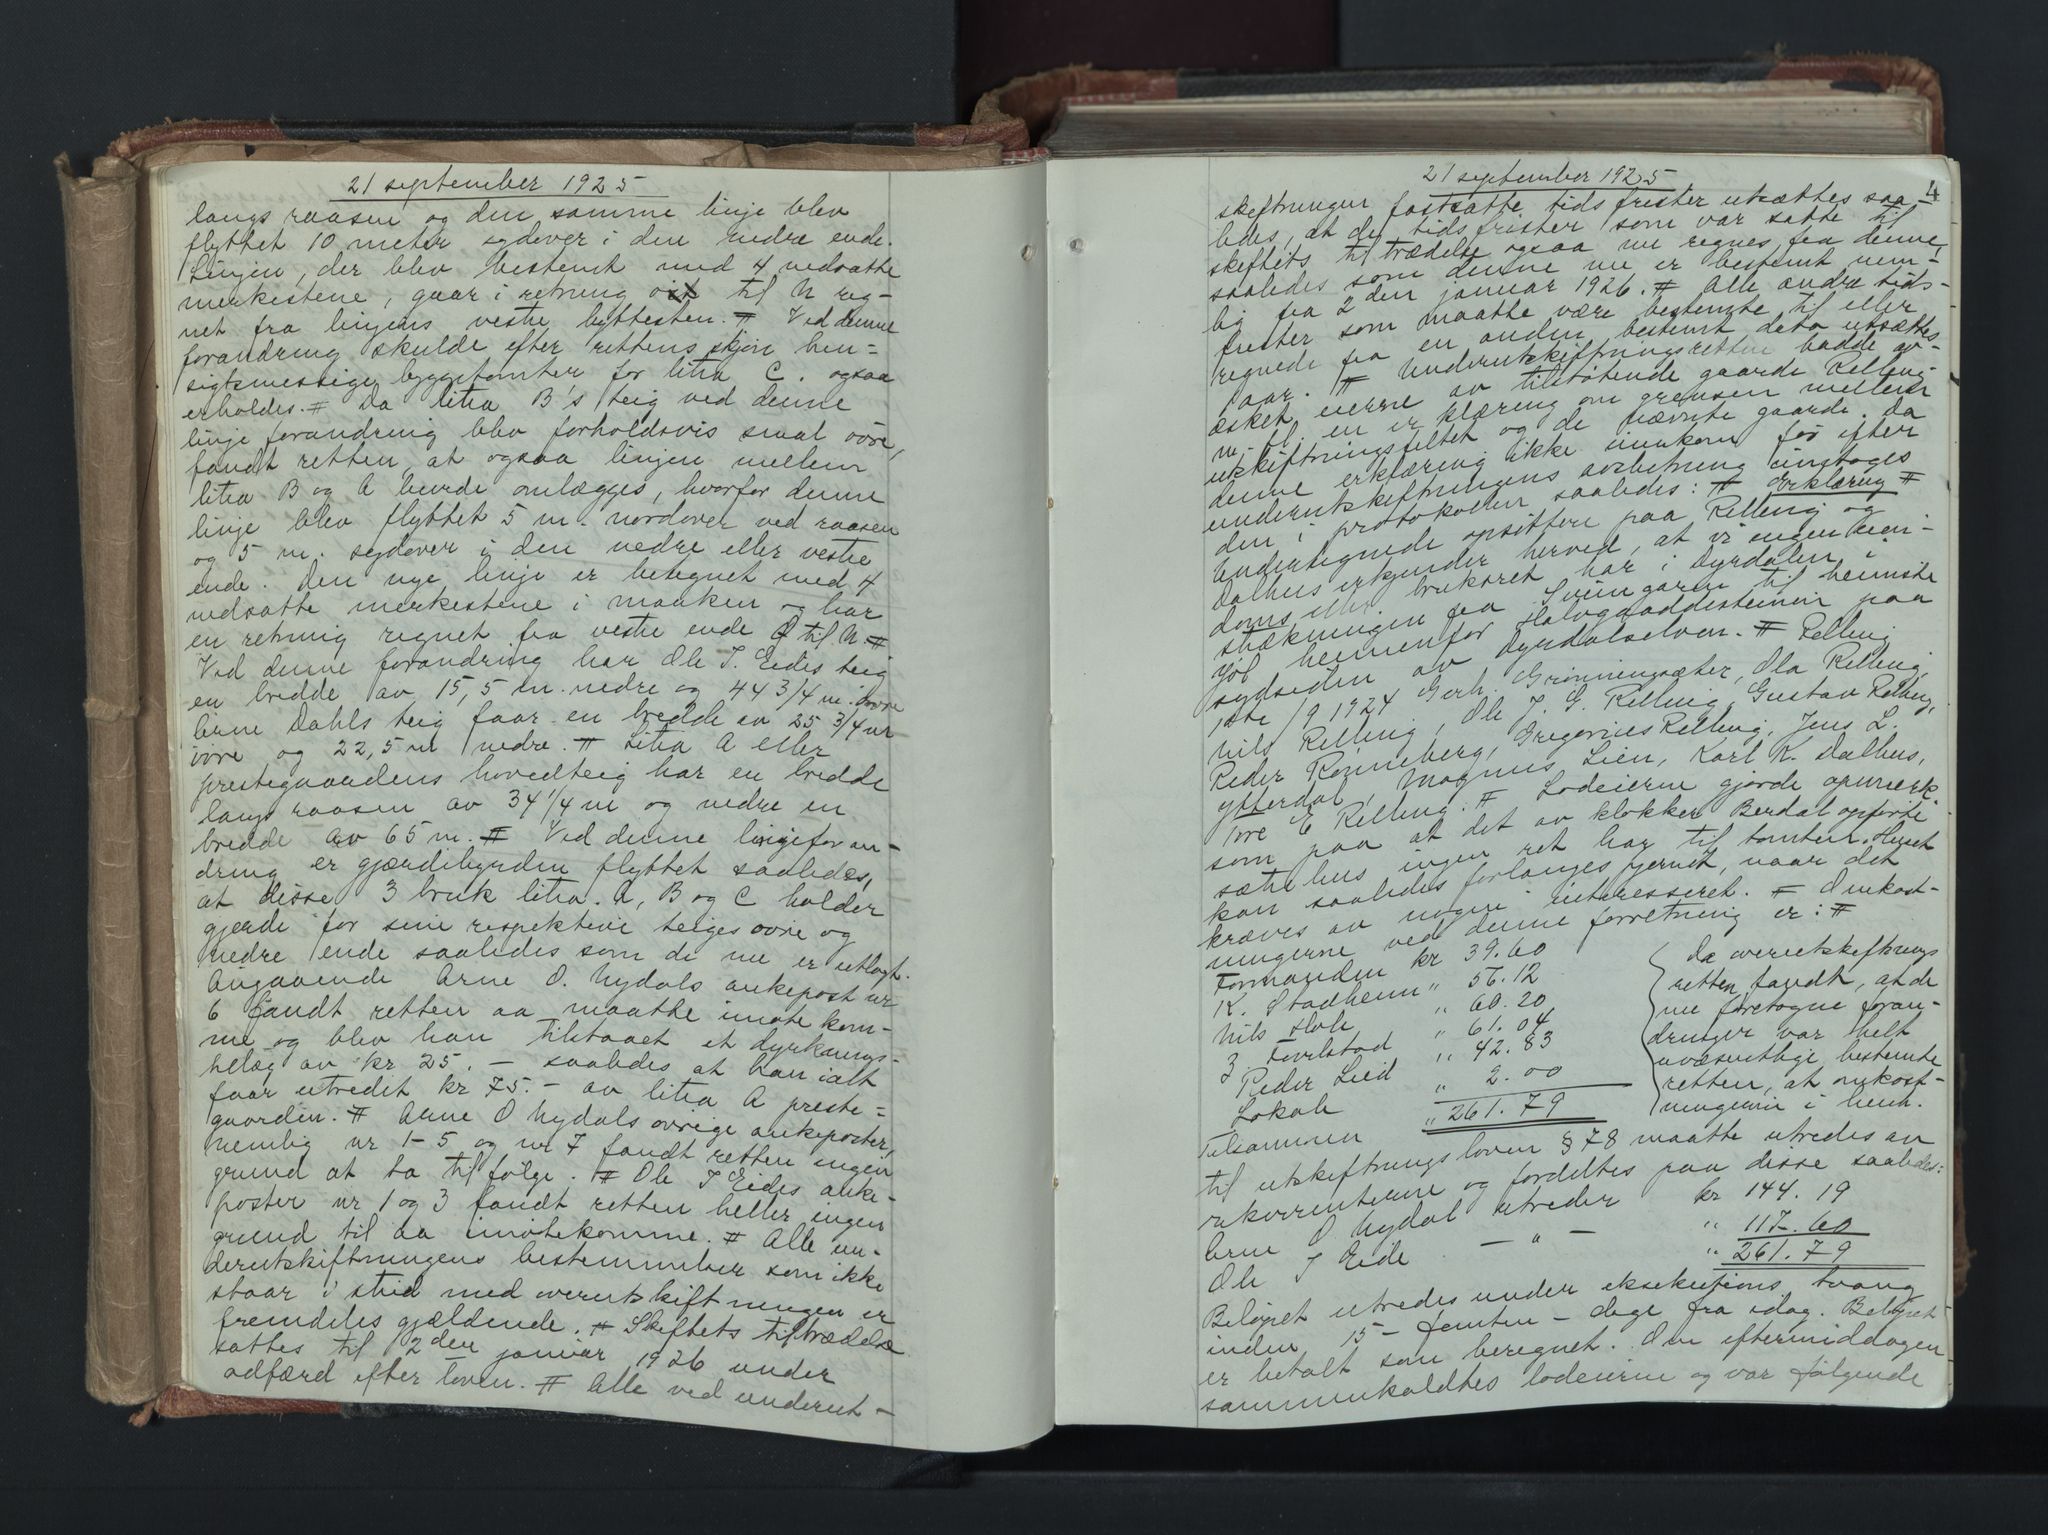 21 september 1925
langs raasen og den samme linje blev
flyttet 10 meter sydover i den nedre ende.
Linjen, der blev bestemt med 4 nedsatte
merkestene, gaar i retning til N reg-
net fra linjens vestre byttesten. # Ved denne
forandring skulde efter rettens skjøn hen=
sigtsmessige byggetomter for litra C. ogsaa
erholdes. # Da litra B's teig ved denne
linje forandring blev forholdsvis smal øvre,
fandt retten at ogsaa linjen mellem
litra B og A burde omlægges, hvorfor denne
linje blev flyttet 5 m. nordover ved raasen
og 5 m. sydover i den nedre eller vestre
ende. Den nye linje er betegnet med 4
nedsatte merkestene i marken og har
en retning regnet fra vestre ende Ø til N #
Ved denne forandring har Ole J. Eides teig
en bredde av 15,5 m. nedre og 44 3/4 m. øvre
Arne Dahls teig faar en bredde av 25 3/4 m
øvre og 22,5 m nedre. # Litra A eller
prestegaardens hovedteig har en bredde
langs raasen av 34 1/4 m og nedre en
bredde av 65 m. # Ved denne linjeforan-
dring er gjærdebyrden flyttet saaledes,
at disse 3 bruk litra A, B og C holder
gjerde for sine respektive teiges øvre og
nedre ende saaledes som de nu er utlagt.
Angaaende Arne O. Nydals ankepost nr
6 fandt retten aa maatte imøtekom-
me og blev han tilstaaet et dyrknings-
belæg av kr 25. – saaledes at han ialt
faar utredet kr 75. – av litra A preste=
gaarden. # Arne O Nydals øvrige ankeposter,
nemlig nr 1–5 og nr 7 fandt retten ingen
grund at ta til følge. # Ole J Eides anke-
poster nr 1 og 3 fandt retten heller ingen
grund til aa imøtekomme. # Alle un-
derutskiftningens bestemmelser som ikke
staar i strid med overutskiftningen er
fremdeles gjældende. # Skiftets tiltrædelse
sattes til 2den januar 1926 under
adfærd efter loven. # Alle ved underut-
4
21 september 1925
skiftningen fastsatte tids frister utsættes saa-
ledes, at de tidsfrister som var satte til
skiftets tiltrædelse ogsaa nu regnes fra denne,
saaledes som denne nu er bestemt nem-
lig fra 2den januar 1926. # Alle andre tids-
frister som maatte være bestemte til eller
regnede fra en anden bestemt dato utsættes
1 aar. # Underutskiftningsretten hadde av-
æsket eierne av tilstøtende gaarde Relling-
m. fl. en erklæring om grensen mellem
utskiftningsfeltet og de nævnte gaarde. Da
denne erklæring ikke innkom før efter
underutskiftningens avslutning inntages
den i protokollen saaledes: # Erklæring #
Undertegnede opsittere paa Relling og
Dalhus erkjender herved, at vi ingen eien-
doms eller bruksret har i Dyrdalen i
strækningen fra Sveingaren til heimste
Høl hennenfor Halvgaaddesteinen paa
sydsiden av Dyrdalselven. # Relling
1ste /9 1924 Gerh. Grønningsæter, Ola Relling,
Nils Relling, Ole J. G. Relling, Gustav Relling,
Peder Rønneberg, Gregorius Relling, Jens L.
Ytterdal, Magnus Lien, Karl K. Dalhus,
Tore E Relling. # Lodeierne gjorde opmerk-
som paa at det av klokker Berdal opførte
sæterhus ingen ret har til tomten. Huset
kan saaledes forlanges fjernet, naar det
kræves av nogen interesseret. # Omkost-
ningerne ved denne forretning er: #
Formanden kr 39.60
K. Stadheim " 56.12
Nils Hole " 60.20
J. " 61.04
Peder Lied " 42.83
Lokale " 2.00
Tilsammen " 261.79
Da overutskiftnings
retten fandt, at de
nu foretagne foran-
dringer var helt
uvæsentlige bestemte
retten, at omkost-
ningerne i henh.
til utskiftningsloven § 78 maatte utredes av
rekurrenterne og fordeltes paa disse saaledes:
Arne O. Nydal utreder kr 144.19
Ole J Eide – " – " 117.60
" 261.79
Beløpet utredes under eksekutions tvang
inden 15 – femten – dage fra idag. Beløpet
er betalt som beregnet. Om eftermiddagen
sammenkaldtes lodeierne og var følgende